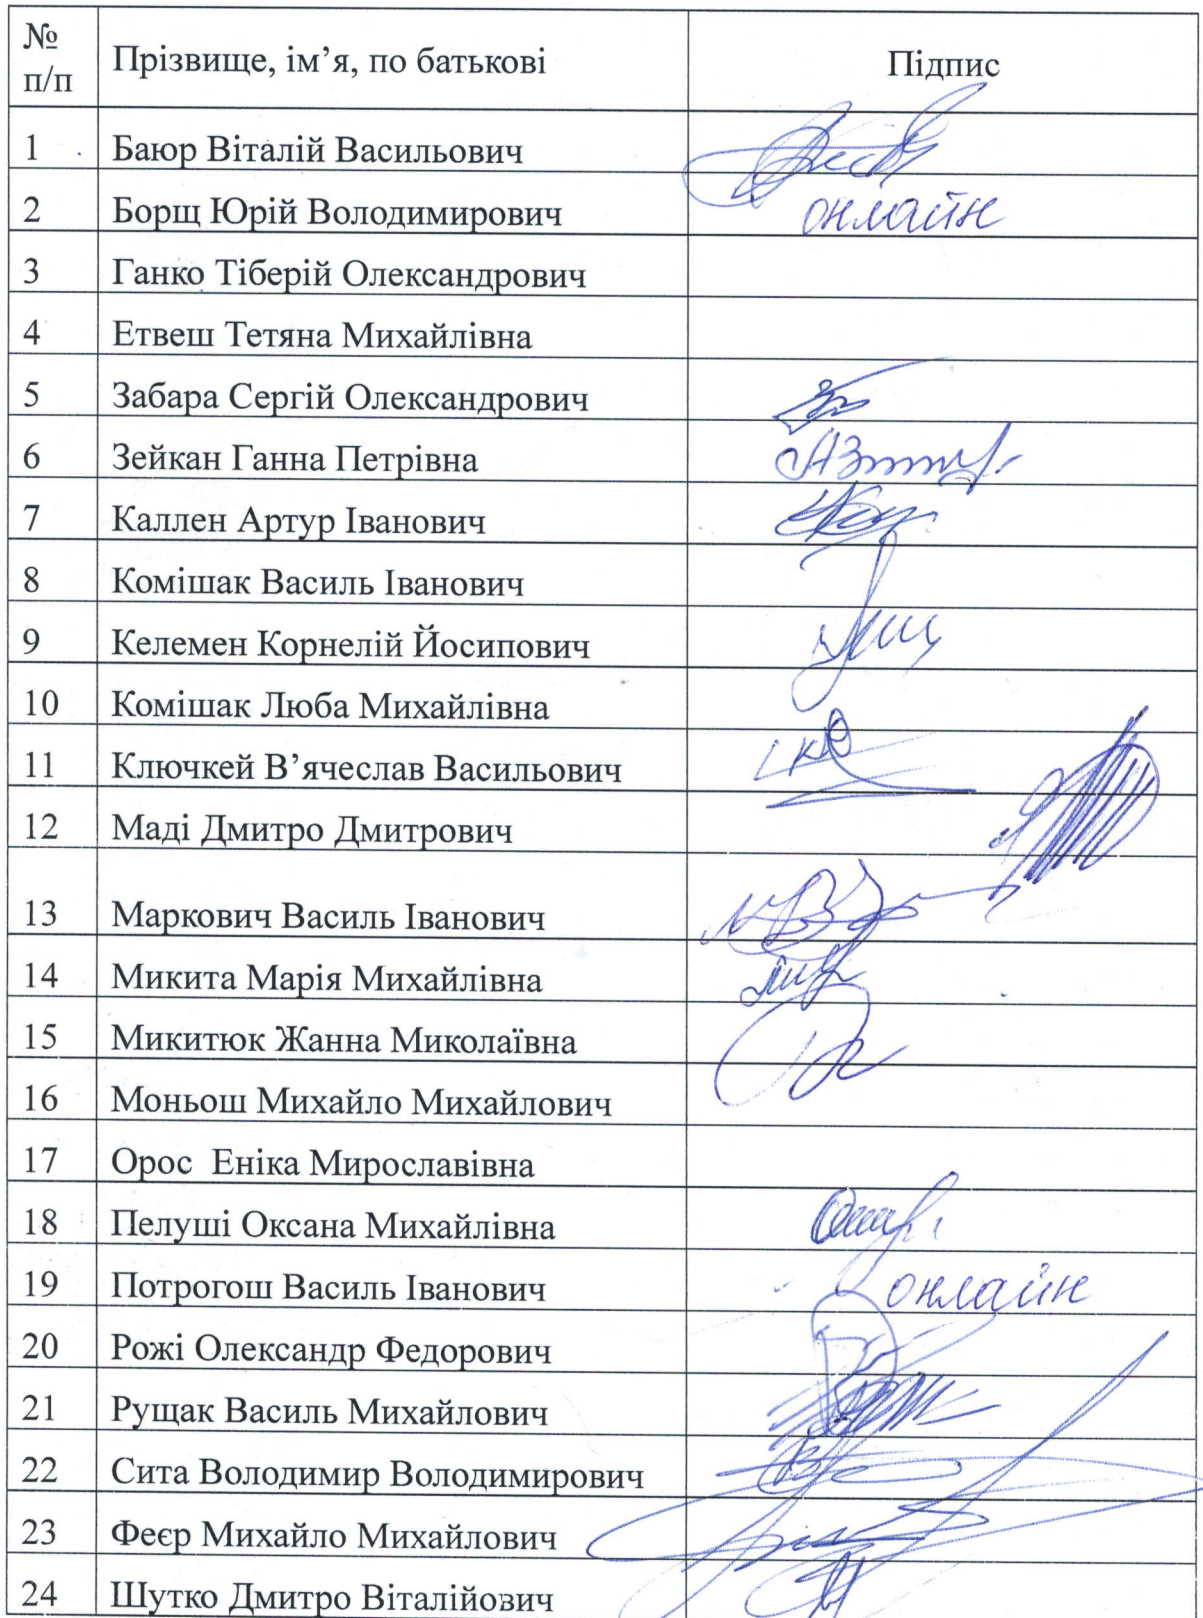 № п/п Прізвище, ім’я, по батькові Підпис
1 Баюр Віталій Васильович
2 Борщ Юрій Володимирович онлайн
3 Ганко Тіберій Олександрович
4 Етвеш Тетяна Михайлівна
5 Забара Сергій Олександрович
6 Зейкан Ганна Петрівна
7 Каллен Артур Іванович
8 Комішак Василь Іванович
9 Келемен Корнелій Йосипович
10 Комішак Люба Михайлівна
11 Ключкей В’ячеслав Васильович
12 Маді Дмитро Дмитрович
13 Маркович Василь Іванович
14 Микита Марія Михайлівна
15 Микитюк Жанна Миколаївна
16 Моньош Михайло Михайлович
17 Орос Еніка Мирославівна
18 Пелуші Оксана Михайлівна
19 Потрогош Василь Іванович онлайн
20 Рожі Олександр Федорович
21 Рущак Василь Михайлович
22 Сита Володимир Володимирович
23 Феєр Михайло Михайлович
24 Шутко Дмитро Віталійович